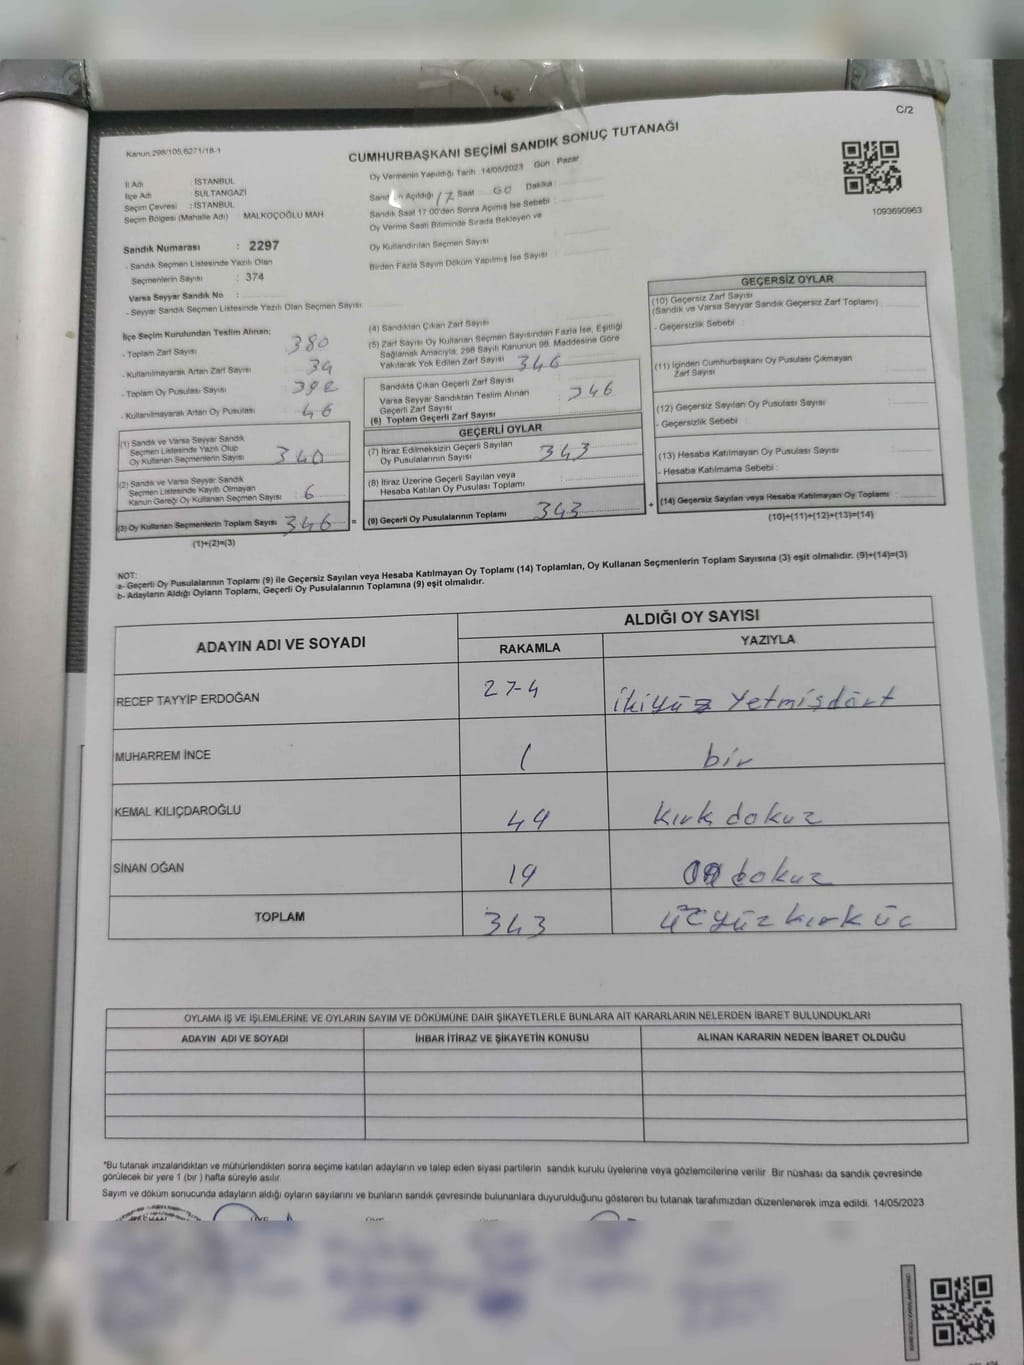 C/2
Kanun,298/105,6271/18-1
CUMHURBAŞKANI SEÇİMİ SANDIK SONUÇ TUTANAĞI
Oy Vermenin Yapıldığı Tarih : 14/05/2023 Gün : Pazar
İl Adı : İSTANBUL
İlçe Adı : SULTANGAZİ
Seçim Çevresi : İSTANBUL
Seçim Bölgesi (Mahalle Adı) MALKOÇOĞLU MAH
Açıldığı 17 Saat 00 Dakika
Sandık Saat 17:00'den Sonra Açımış İse Sebebi :
Oy Verme Saati Bitiminde Sırada Bekleyen ve
Oy Kullandırılan Seçmen Sayısı
Birden Fazla Sayım Döküm Yapılmış İse Sayısı :
1093690963
Sandık Numarası : 2297
- Sandık Seçmen Listesinde Yazılı Olan
Seçmenlerin Sayısı : 374
Varsa Seyyar Sandık No :
- Seyyar Sandık Seçmen Listesinde Yazılı Olan Seçmen Sayısı
İlçe Seçim Kurulundan Teslim Alınan;
- Toplam Zarf Sayısı 380
- Kullanılmayarak Artan Zarf Sayısı 34
- Toplam Oy Pusulası Sayısı
- Kullanılmayarak Artan Oy Pusulası 46
(1) Sandık ve Varsa Seyyar Sandık
Seçmen Listesinde Yazılı Olup
Oy Kullanan Seçmenlerin Sayısı 340
(2) Sandık ve Varsa Seyyar Sandık
Seçmen Listesinde Kayıtlı Olmayan
Kanun Gereği Oy Kullanan Seçmen Sayısı : 6
(3) Oy Kullanan Seçmenlerin Toplam Sayısı 346 =
(1)+(2)=(3)
(4) Sandıktan Çıkan Zarf Sayısı
(5) Zarf Sayısı Oy Kullanan Seçmen Sayısından Fazla İse, Eşitliği
Sağlamak Amacıyla; 298 Sayılı Kanunun 98. Maddesine Göre
Yakılarak Yok Edilen Zarf Sayısı 346
Sandıkta Çıkan Geçerli Zarf Sayısı
Varsa Seyyar Sandıktan Teslim Alınan
Geçerli Zarf Sayısı 346
(6) Toplam Geçerli Zarf Sayısı
GEÇERLİ OYLAR
(7) İtiraz Edilmeksizin Geçerli Sayılan
Oy Pusulalarının Sayısı 343
(8) İtiraz Üzerine Geçerli Sayılan veya
Hesaba Katılan Oy Pusulası Toplamı
(9) Geçerli Oy Pusulalarının Toplamı 343 +
GEÇERSİZ OYLAR
(10) Geçersiz Zarf Sayısı
(Sandık ve Varsa Seyyar Sandık Geçersiz Zarf Toplamı)
- Geçersizlik Sebebi :
(11) İçinden Cumhurbaşkanı Oy Pusulası Çıkmayan
Zarf Sayısı
(12) Geçersiz Sayılan Oy Pusulası Sayısı :
- Geçersizlik Sebebi :
(13) Hesaba Katılmayan Oy Pusulası Sayısı :
- Hesaba Katılmama Sebebi :
(14) Geçersiz Sayılan veya Hesaba Katılmayan Oy Toplamı :
(10)+(11)+(12)+(13)=(14)
NOT:
a- Geçerli Oy Pusulalarının Toplamı (9) ile Geçersiz Sayılan veya Hesaba Katılmayan Oy Toplamı (14) Toplamları, Oy Kullanan Seçmenlerin Toplam Sayısına (3) eşit olmalıdır. (9)+(14)=(3)
b- Adayların Aldığı Oyların Toplamı, Geçerli Oy Pusulalarının Toplamına (9) eşit olmalıdır.
ADAYIN ADI VE SOYADI
ALDIĞI OY SAYISI
RAKAMLA YAZIYLA
RECEP TAYYİP ERDOĞAN 274 ikiyüz yetmişdört
MUHARREM İNCE 1 bir
KEMAL KILIÇDAROĞLU 49 kırk dokuz
SİNAN OĞAN 19 on dokuz
TOPLAM 343 üç yüz kırk üc
OYLAMA İŞ VE İŞLEMLERİNE VE OYLARIN SAYIM VE DÖKÜMÜNE DAİR ŞİKAYETLERLE BUNLARA AİT KARARLARIN NELERDEN İBARET BULUNDUKLARI
ADAYIN ADI VE SOYADI İHBAR İTİRAZ VE ŞİKAYETİN KONUSU ALINAN KARARIN NEDEN İBARET OLDUĞU
*Bu tutanak imzalandıktan ve mühürlendikten sonra seçime katılan adayların ve talep eden siyasi partilerin sandık kurulu üyelerine veya gözlemcilerine verilir. Bir nüshası da sandık çevresinde
görülecek bir yere 1 (bir ) hafta süreyle asılır.
Sayım ve döküm sonucunda adayların aldığı oyların sayılarını ve bunların sandık çevresinde bulunanlara duyurulduğunu gösteren bu tutanak tarafımızdan düzenlenerek imza edildi. 14/05/2023